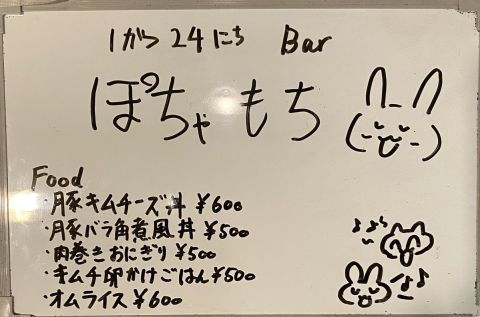 1がつ24にち Bar
ぽちゃもち
Food
・豚キムチーズ丼 ¥600
・豚バラ角煮風丼 ¥500
・肉巻きおにぎり ¥500
・キムチ卵かけごはん ¥500
・オムライス ¥600